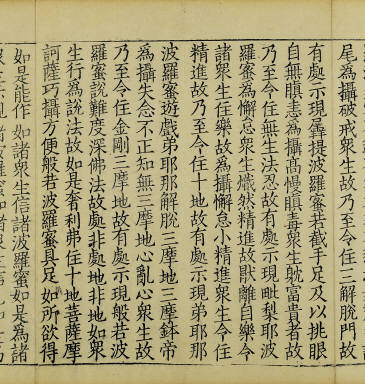 尾為攝破戒衆生故乃至令住三解脫門故
有處示現羼提波羅蜜若截手足及以挑眼
自無瞋恚為攝髙慢瞋毒衆生躭富貴者故
乃至令住無生法忍故有處示現毗梨耶波
羅蜜為懈怠衆生熾然精進故猒離自樂令
諸衆生住樂故為攝懈怠小精進衆生令住
精進故乃至令住十地故有處示現弟耶那
波羅蜜遊戲弟耶那解脫三摩地三摩鉢帝
為攝失念不正知無三摩地心亂心衆生故
乃至令住金剛三摩地故有處示現般若波
羅蜜說難度深佛法故處非處地非地如衆
生行為說法故如是奢利弗住十地菩薩摩
訶薩巧攝方便般若波羅蜜具足如所欲得
如是能作 如諸衆生信諸波羅蜜如是為諸